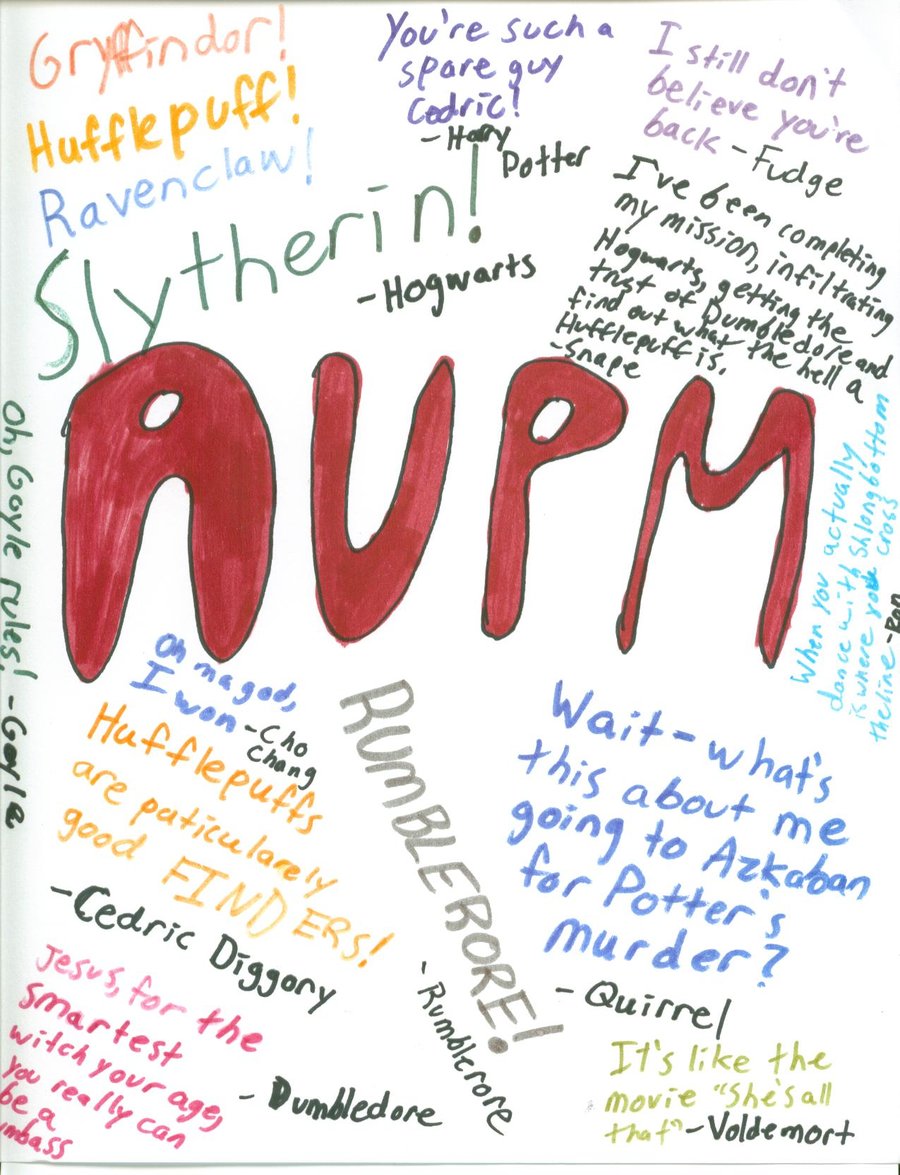 Gryffindor!
Hufflepuff!
Ravenclaw!
Slytherin!
-Hogwarts
You're such a
spare guy
Cedric!
-Harry
Potter
I still don't
believe you're
back -Fudge
I've been completing
my mission, infiltrating
Hogwarts, getting the
trust of Dumbledore and
find out what the hell a
Hufflepuff is.
-Snape
AVPM
Oh, Goyle rules! -Goyle
When you actually
dance with Shlongbottom
is where you cross
the line -Ron
Oh ma god,
I won -Cho
Chang
Hufflepuffs
are paticularely
good FINDERS!
-Cedric Diggory
RUMBLEBORE!
-Rumblerore
Wait-what's
this about me
going to Azkaban
for Potter's
murder?
-Quirrel
Jesus, for the
smartest
witch your age,
you really can
be a
mbass
- Dumbledore
It's like the
movie "She's all
that" -Voldemort